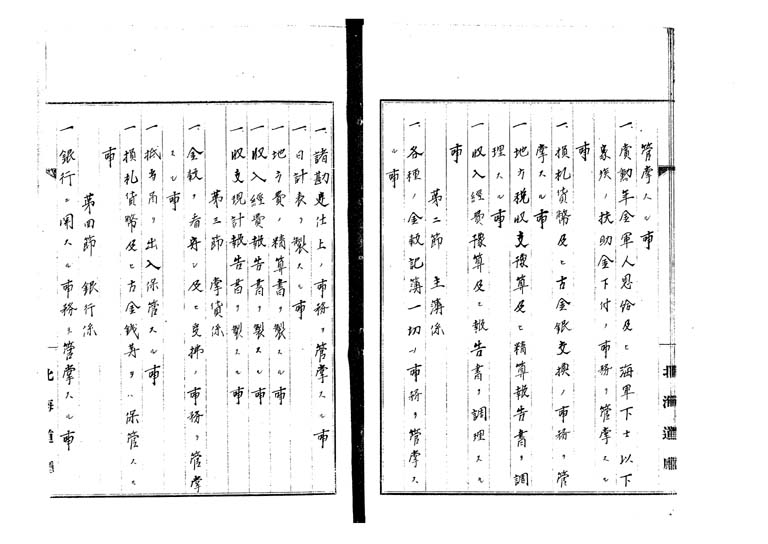 管掌スル事
一賞勲年金軍人恩給及ヒ海軍下士以下
家族ノ扶助金下付ノ事務ヲ管掌スル
事
一損札貨幣及ヒ古金銀交換ノ事務ヲ管
掌スル事
一地方税収支豫算及ヒ精算報告書ヲ調
理スル事
一収入経費豫算及ヒ報告書ヲ調理スル
事
第二節 主簿係
一各種ノ金穀記簿一切ノ事務ヲ管掌ス
ル事
北海道廳
一諸勘定仕上ノ事務ヲ管掌スル事
一日計表ヲ製スル事
一地方費ノ精算書ヲ製スル事
一収入経費報告書ヲ製スル事
一収支現計報告書ヲ製スル事
第三節 掌貨係
一金穀ノ看守及ヒ支拂ノ事務ヲ管掌
スル事
一抵当品ノ出入保管スル事
一損札貨幣及ヒ古金銭等ヲ保管スル
事
第四節 銀行係
一銀行ニ関スル事務ヲ管掌スル事
北海道廳